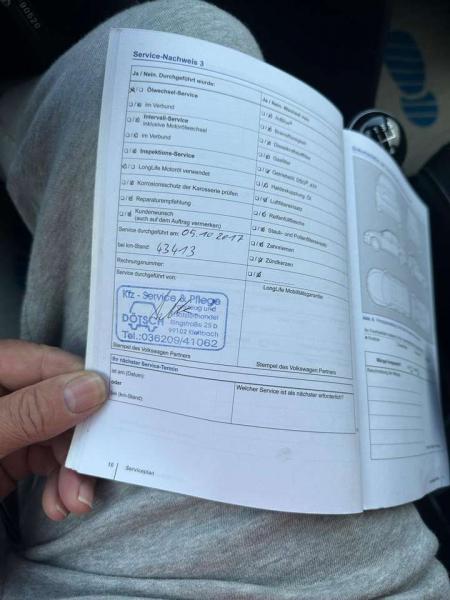 Service-Nachweis 3
Ja / Nein. Durchgeführt wurde:
Ölwechsel-Service
im Verbund
Intervall-Service
inklusive Motorölwechsel
im Verbund
Inspektions-Service
LongLife Motoröl verwendet
Korrosionsschutz der Karosserie prüfen
Reparaturempfehlung
Kundenwunsch
(auch auf dem Auftrag vermerken)
Service durchgeführt am: 05.10.2017
bei km-Stand: 43413
Rechnungsnummer:
Service durchgeführt von:
Kfz - Service & Pflege
DÖTSCH
Ringstraße 25 D
99102 Klettbach
Tel.:036209/41062
Stempel des Volkswagen Partners
Ihr nächster Service-Termin
ist am (Datum):
oder
(bei km-Stand):
Bremsflüssigkeit
Dieselkraftstofffilter
Getriebeöl, DSG®, ATF
Haldexkupplung: Öl
Luftfiltereinsatz
Reifenfüllflasche
Staub- und Pollenfiltereinsatz
Zahnriemen
Zündkerzen
LongLife Mobilitätsgarantie
Stempel des Volkswagen Partners
Welcher Service ist als nächster erforderlich?
16
Serviceplan